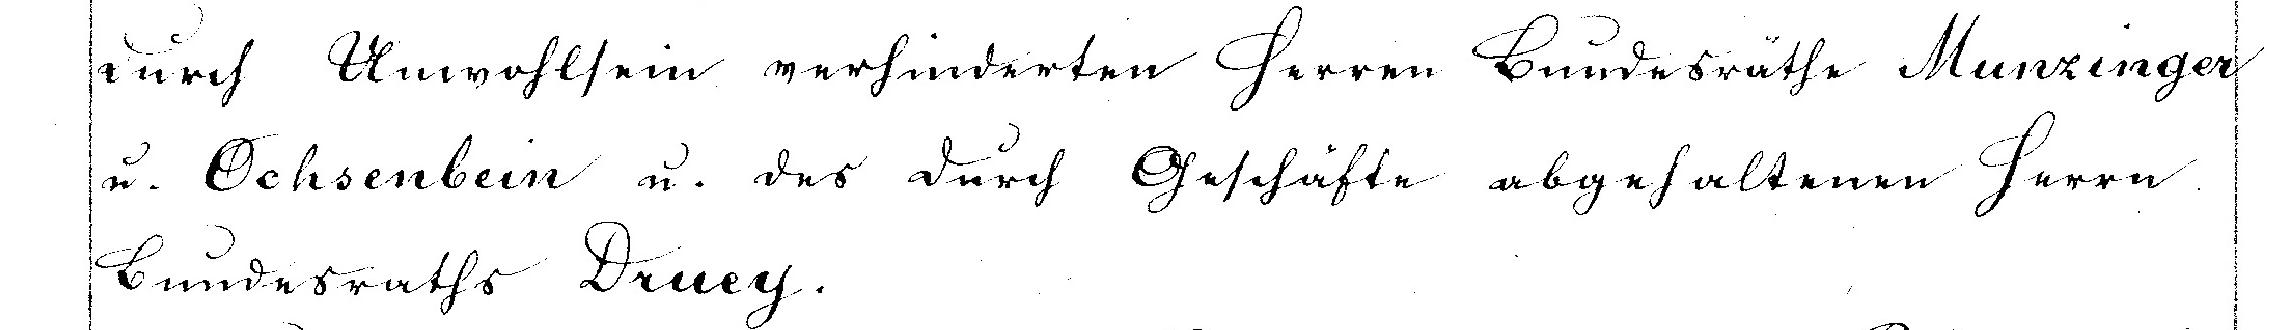 durch Unwohlsein verhinderten Herren Bundesräthe Munzinger
u. Ochsenbein u. des durch Geschäfte abgehaltenen Herrn
Bundesraths Druey.